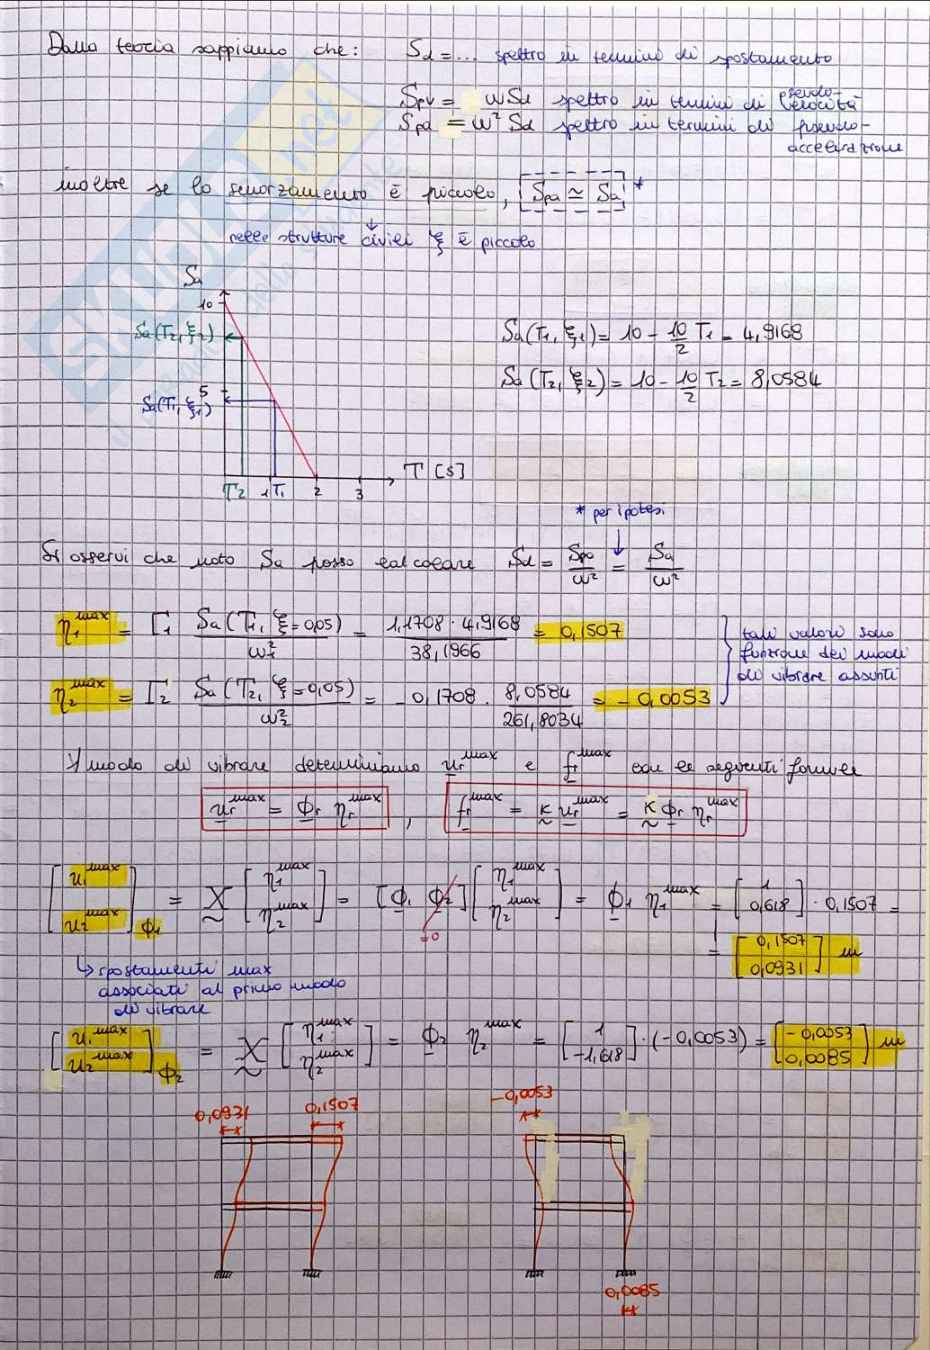 Dalla teoria sappiamo che: Sd = ... spettro in termini di spostamento
Spv = ωSd spettro in termini di pseudo-velocità
Spa = ω² Sd spettro in termini di pseudo-
accelerazione
inoltre se lo smorzamento è piccolo, Spa ≃ Sa *
nelle strutture civili ξ è piccolo
Sa
10
Sa(T2, ξ2)
5
Sa(T1, ξ1)
T2 1 T1 2 3 T [s]
Sa(T1, ξ1) = 10 - 10/2 T1 = 4,9168
Sa(T2, ξ2) = 10 - 10/2 T2 = 8,0584
* per ipotesi
Si osservi che noto Sa posso calcolare Sd = Spa/ω² = Sa/ω²
η1^max = Γ1 Sa(T1, ξ=0,05)/ω1² = 1,1708 · 4,9168/38,1966 = 0,1507
η2^max = Γ2 Sa(T2, ξ=0,05)/ω2² = -0,1708 · 8,0584/261,8034 = -0,0053
tali valori sono
funzione dei modi
di vibrare assunti
∀ modo di vibrare determiniamo ur^max e fr^max con le seguenti formule
ur^max = ϕr ηr^max , fr^max = K ur^max = K ϕr ηr^max
[u1^max u2^max]ϕ1 = X [η1^max η2^max] = [ϕ1 ϕ2] [η1^max η2^max] = ϕ1 η1^max = [1 0,618] · 0,1507 =
=0
= [0,1507 0,0931] m
↳ spostamenti max
associati al primo modo
di vibrare
[u1^max u2^max]ϕ2 = X [η1^max η2^max] = ϕ2 η2^max = [1 -1,618] · (-0,0053) = [-0,0053 0,0085] m
0,0931 0,1507
-0,0053
0,0085
SKUOLA.net